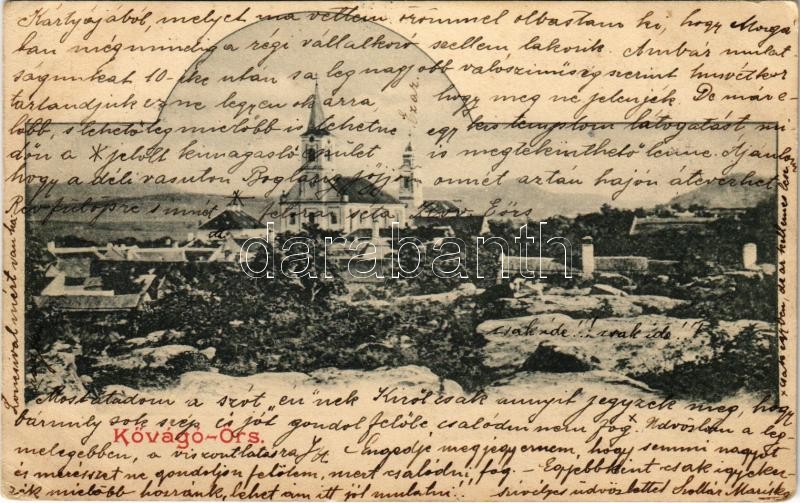 Kártyájából, melyet ma vettem, örömmel olvastam ki, hogy Morga
ban még mindig a régi vállalkozó szellem lakozik. Ambár mulat
ságunkat 10-ike után sa legnagyobb valószinűség szerint husvétkor
tartandjuk ez ne legyen ok arra, hogy meg ne jelenjék. De már e-
lőbb, s lehetőleg mielőbb is lehetne egy kis templom látogatást, mi
dőn a * jelölt kimagasló épület is megtekinthető lenne. Ajánlom
hogy a déli vasuton Boglárig jöjjön onnét aztán hajón átevezhet
Révfülöpre s innét félóra séta Köv. Eörs
ide
csak ide!! csak ide!!
Most átadom a szót, én'nek Kiről csak annyit jegyzek meg, hogy
bármily sok szép és jót gondol felőle csalódni nem fog. Üdvözlöm a leg
melegebben, a viszontlátásra
Kővágó-Örs.
Engedje megjegyeznem, hogy semmi nagyot
és merészet ne gondoljon felőlem, mert csalódni fog. - Egyébként csak igyekez-
zék mielőbb hozzánk, lehet am itt jól mulatni. szivélyes üdvözlettel Sollár Mariska
darabanth